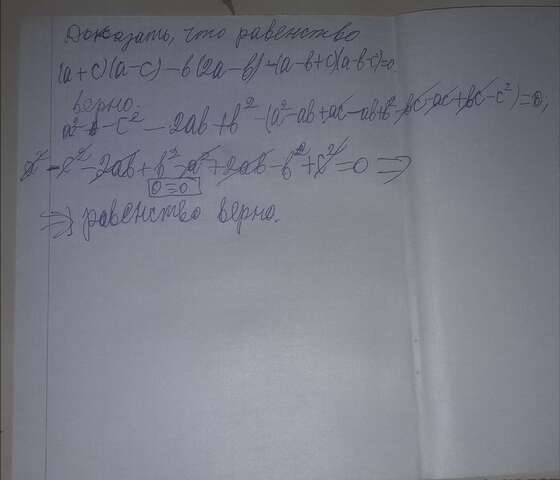 Доказать, что равенство
(a+c)(a-c)-b(2a-b)-(a-b+c)(a-b-c)=0
верно.
a²-c²-2ab+b²-(a²-ab+ac-ab+b²-bc-ac+bc-c²)=0;
a²-c²-2ab+b²-a²+2ab-b²+c²=0 ⇒
0=0
⇒ равенство верно.